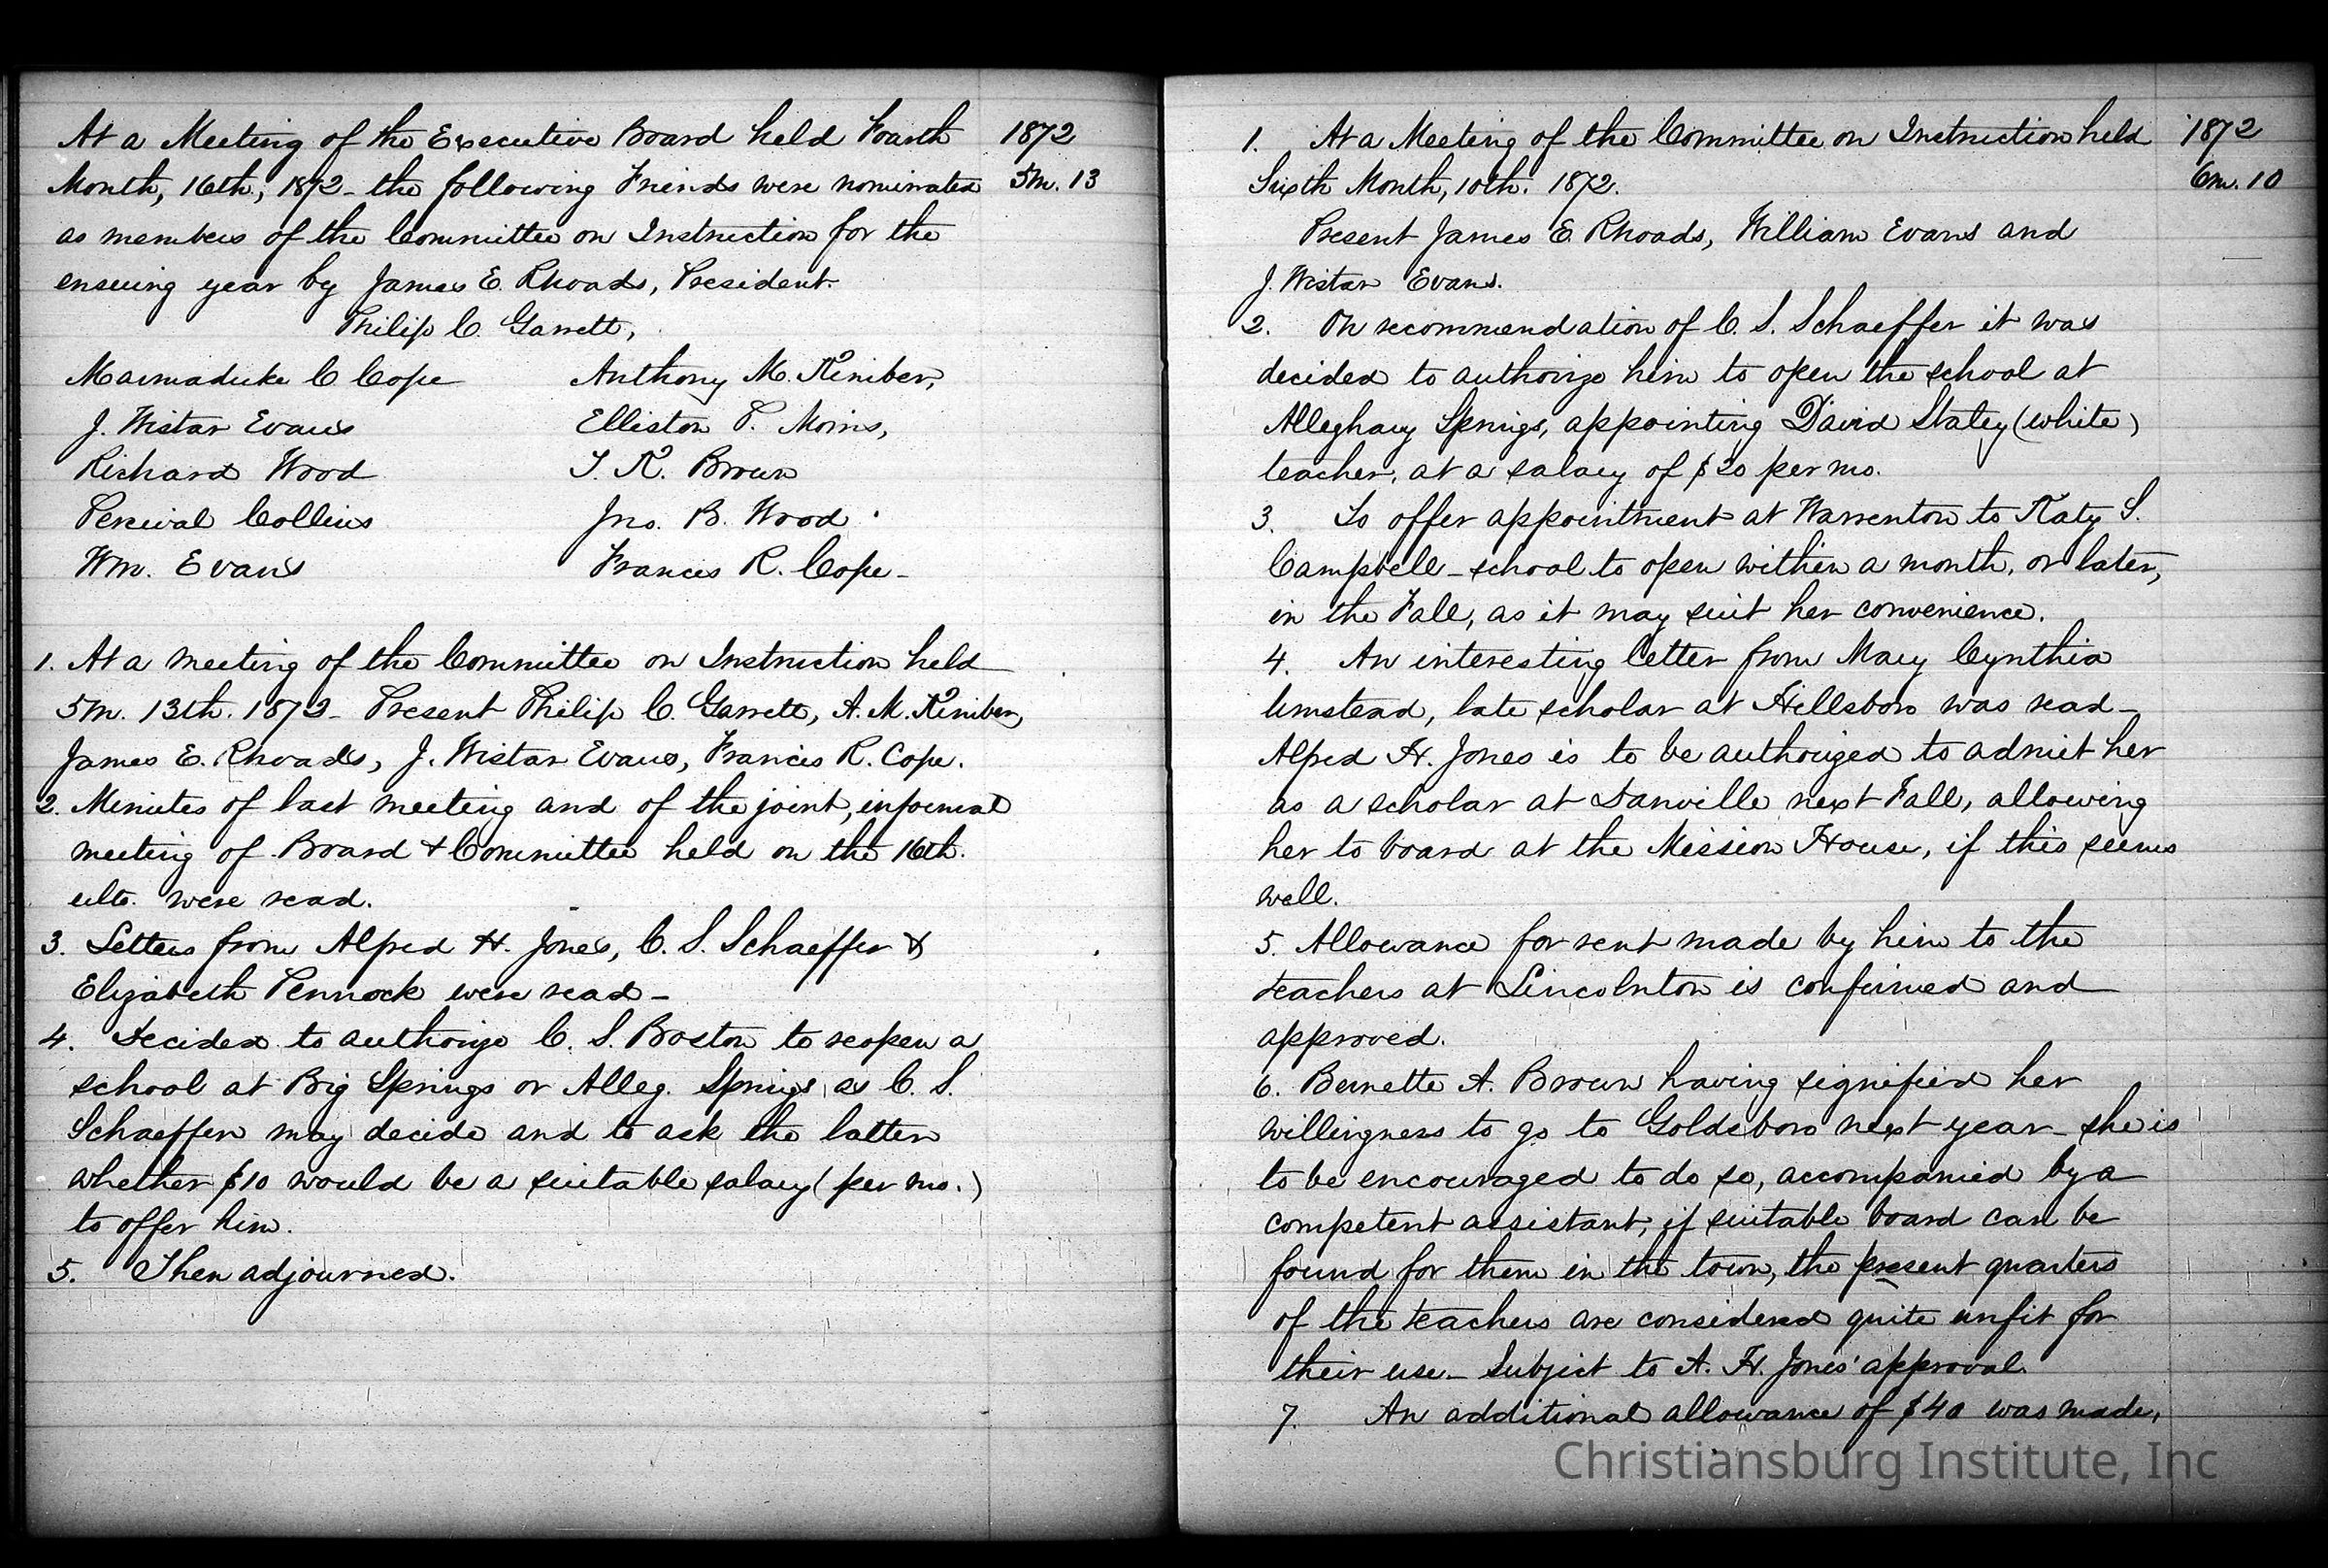 At a Meeting of the Executive Board held Fourth 1872
Month, 16th, 1872 - the following Friends were nominated 5m. 13
as members of the Committee on Instruction for the
ensuing year by James E. Rhoads, President.
Philip C. Garrett,
Marmaduke C Cope Anthony M. Kimber,
J. Wistar Evans Elliston P. Morris,
Richard Wood T. K. Brown
Percival Collins Jno. B. Wood
Wm. Evans Francis R. Cope -
1. At a meeting of the Committee on Instruction held
5m. 13th. 1872 - Present Philip C. Garrett, A. M. Kimber,
James E. Rhoads, J. Wistar Evans, Francis R. Cope.
2. Minutes of last meeting and of the joint, informal
meeting of Board & Committee held on the 16th.
ulto. were read.
3. Letters from Alfred H. Jones, C. S. Schaeffer &
Elizabeth Pennock were read -
4. Decided to authorize C. S. Boston to reopen a
school at Big Springs or Alleg. Springs as C. S.
Schaeffer may decide and to ask the latter
whether $10 would be a suitable salary (per mo.)
to offer him.
5. Then adjourned.
1. At a Meeting of the Committee on Instruction held 1872
Sixth Month, 10th. 1872. 6m. 10
Present James E. Rhoads, William Evans and
J. Wistar Evans.
2. On recommendation of C. S. Schaeffer it was
decided to authorize him to open the school at
Alleghany Springs, appointing David Staley (white)
teacher, at a salary of $20 per mo.
3. To offer appointment at Warrenton to Katy S.
Campbell - school to open within a month, or later,
in the Fall, as it may suit her convenience.
4. An interesting letter from Mary Cynthia
Umstead, late scholar at Hillsboro was read -
Alfred H. Jones is to be authorized to admit her
as a scholar at Danville next Fall, allowing
her to board at the Mission House, if this seems
well.
5. Allowance for rent made by him to the
teachers at Lincolnton is confirmed and
approved.
6. Burnette A. Brown having signified her
willingness to go to Goldsboro next year - she is
to be encouraged to do so, accompanied by a
competent assistant, if suitable board can be
found for them in the town, the present quarters
of the teachers are considered quite unfit for
their use - Subject to A. H. Jones' approval
7. An additional allowance of $40 was made,
Christiansburg Institute, Inc